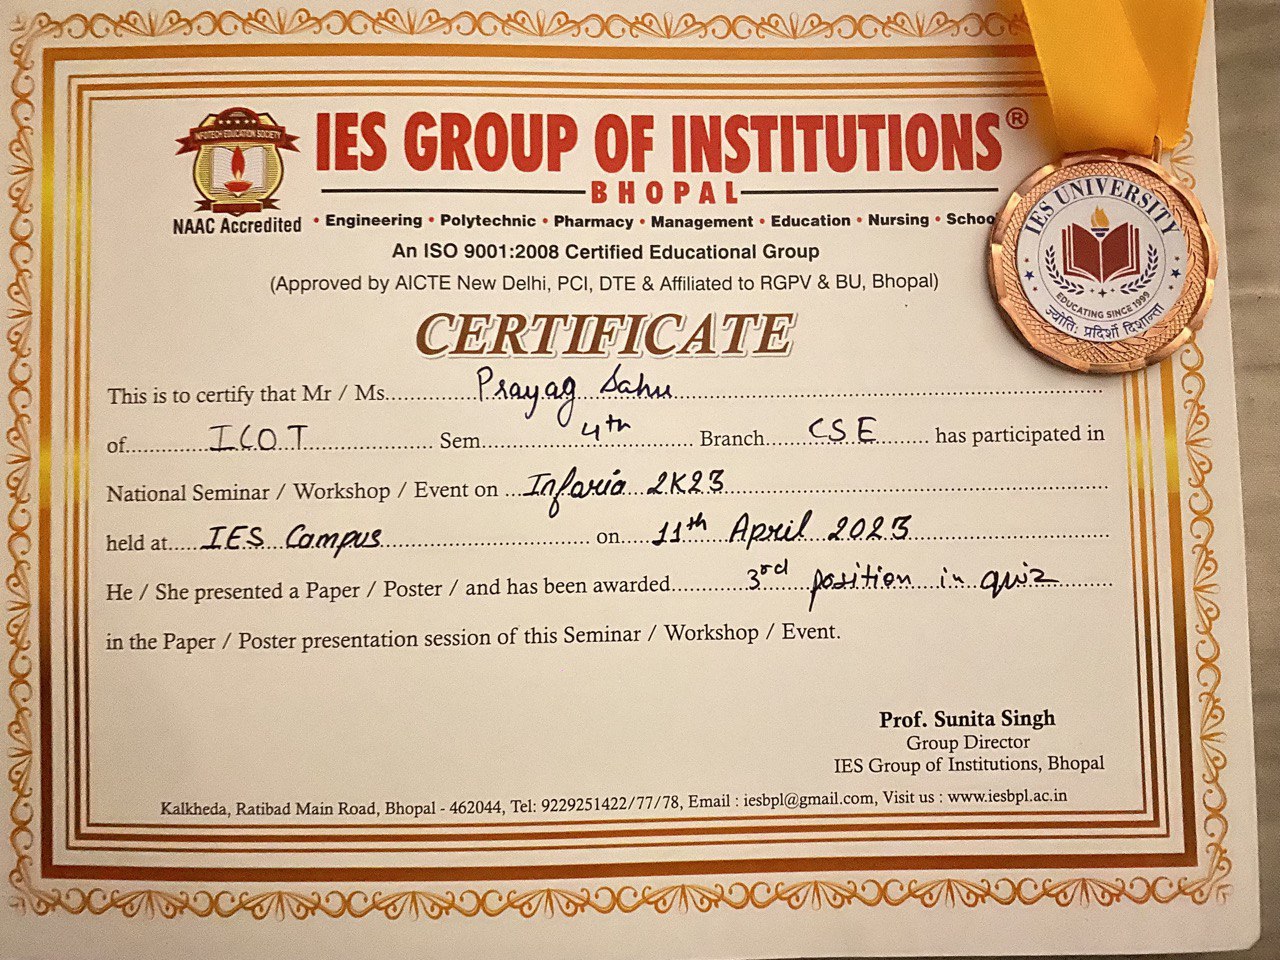 INFOTECH EDUCATION SOCIETY
NAAC Accredited
IES GROUP OF INSTITUTIONS®
BHOPAL
• Engineering • Polytechnic • Pharmacy • Management • Education • Nursing • Schoo
An ISO 9001:2008 Certified Educational Group
(Approved by AICTE New Delhi, PCI, DTE & Affiliated to RGPV & BU, Bhopal)
IES UNIVERSITY
EDUCATING SINCE 1999
ज्योतिः प्रदिर्शो दिशान्ता
CERTIFICATE
This is to certify that Mr / Ms. Prayag Sahu
of ICOT Sem 4th Branch CSE has participated in
National Seminar / Workshop / Event on Infaria 2K23
held at IES Campus on 11th April 2023
He / She presented a Paper / Poster / and has been awarded 3rd position in quiz
in the Paper / Poster presentation session of this Seminar / Workshop / Event.
Prof. Sunita Singh
Group Director
IES Group of Institutions, Bhopal
Kalkheda, Ratibad Main Road, Bhopal - 462044, Tel: 9229251422/77/78, Email : iesbpl@gmail.com, Visit us : www.iesbpl.ac.in